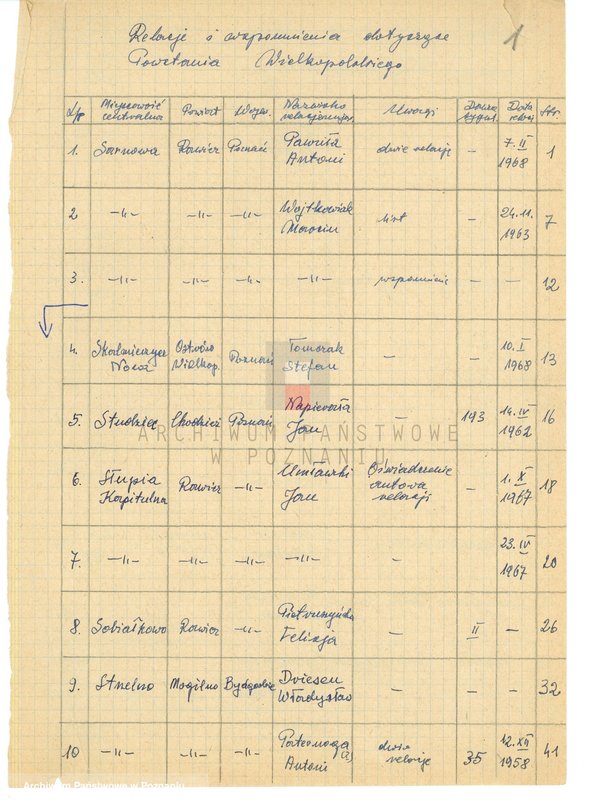 1
Relacje i wspomnienia dotyczące
Powstania Wielkopolskiego
L/p Miejscowość centralna Powiat Wojew. Nazwisko Uwagi Data Str.
1. Sarnowa Rawicz Poznań Pawuła Antoni dwie relacje – 7. II 1968 1
2 –"– –"– –"– Wojtkowiak Marcin list – 24. 11. 1963 7
3. –"– –"– –"– –"– – 12
4. Nowa Ostrów Wielkop. Poznań Tomczak Stefan – – 10. I 1968 13
5. Studziec Chodzież Poznań Napierała Jan – 193 14. IV 1962 16
ARCHIWUM PAŃSTWOWE
W POZNANIU
6. Słupia Kapitulna Rawicz –"– Jan Oświadczenie autora relacji – 1. X 1967 18
7. –"– –"– –"– –"– – 23. IV 1967 20
8. Sobiałkowo Rawicz –"– Felicja – II – 26
9. Strzelno Mogilno Bydgoskie Władysław – – – 32
10 –"– –"– –"– Antoni dwie relacje 35 12. XII 1958 41
Archiwum Państwowe w Poznaniu